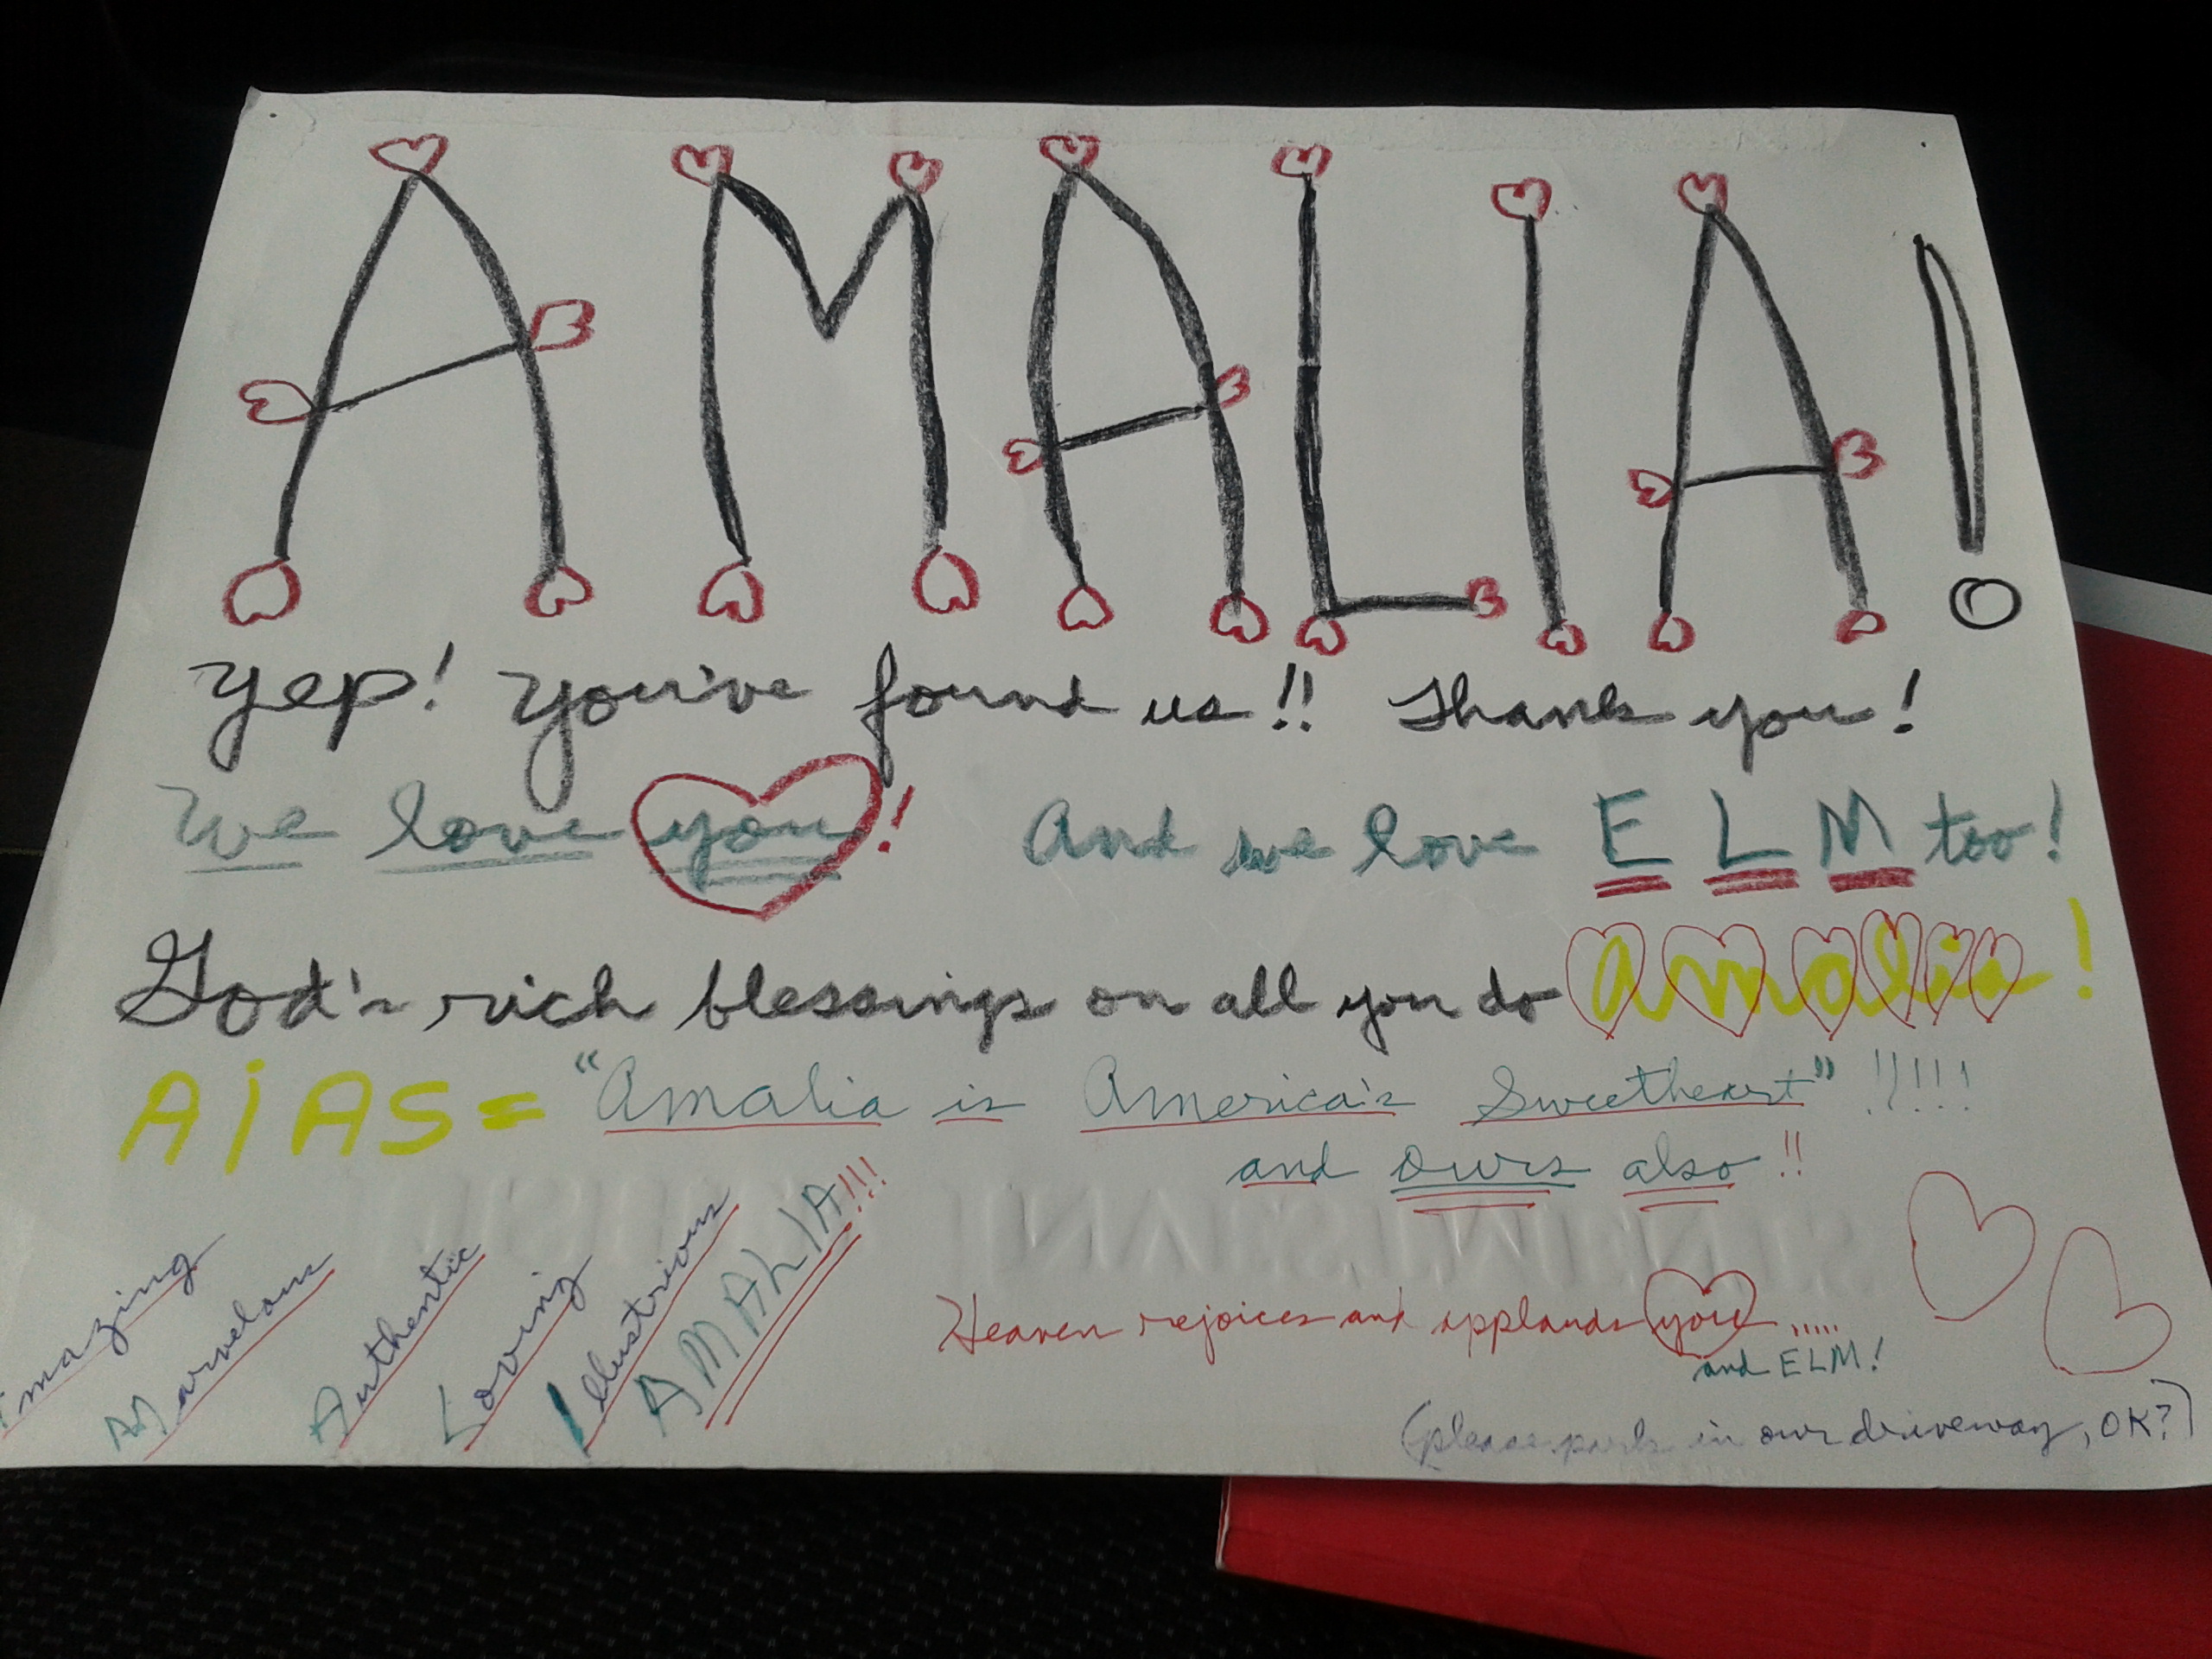 AMALIA!
Yep! You've found us!! Thank you!
We love you! And we love ELM too!
God's rich blessings on all you do Amalia!
AiAS= "Amalia is America's Sweetheart" !!!!!
and ours also!!
Amazing
Marvelous
Authentic
Loving
Illustrious
AMALIA!!!
Heaven rejoices and applauds you .....
and ELM!
(please park in our driveway, OK?)